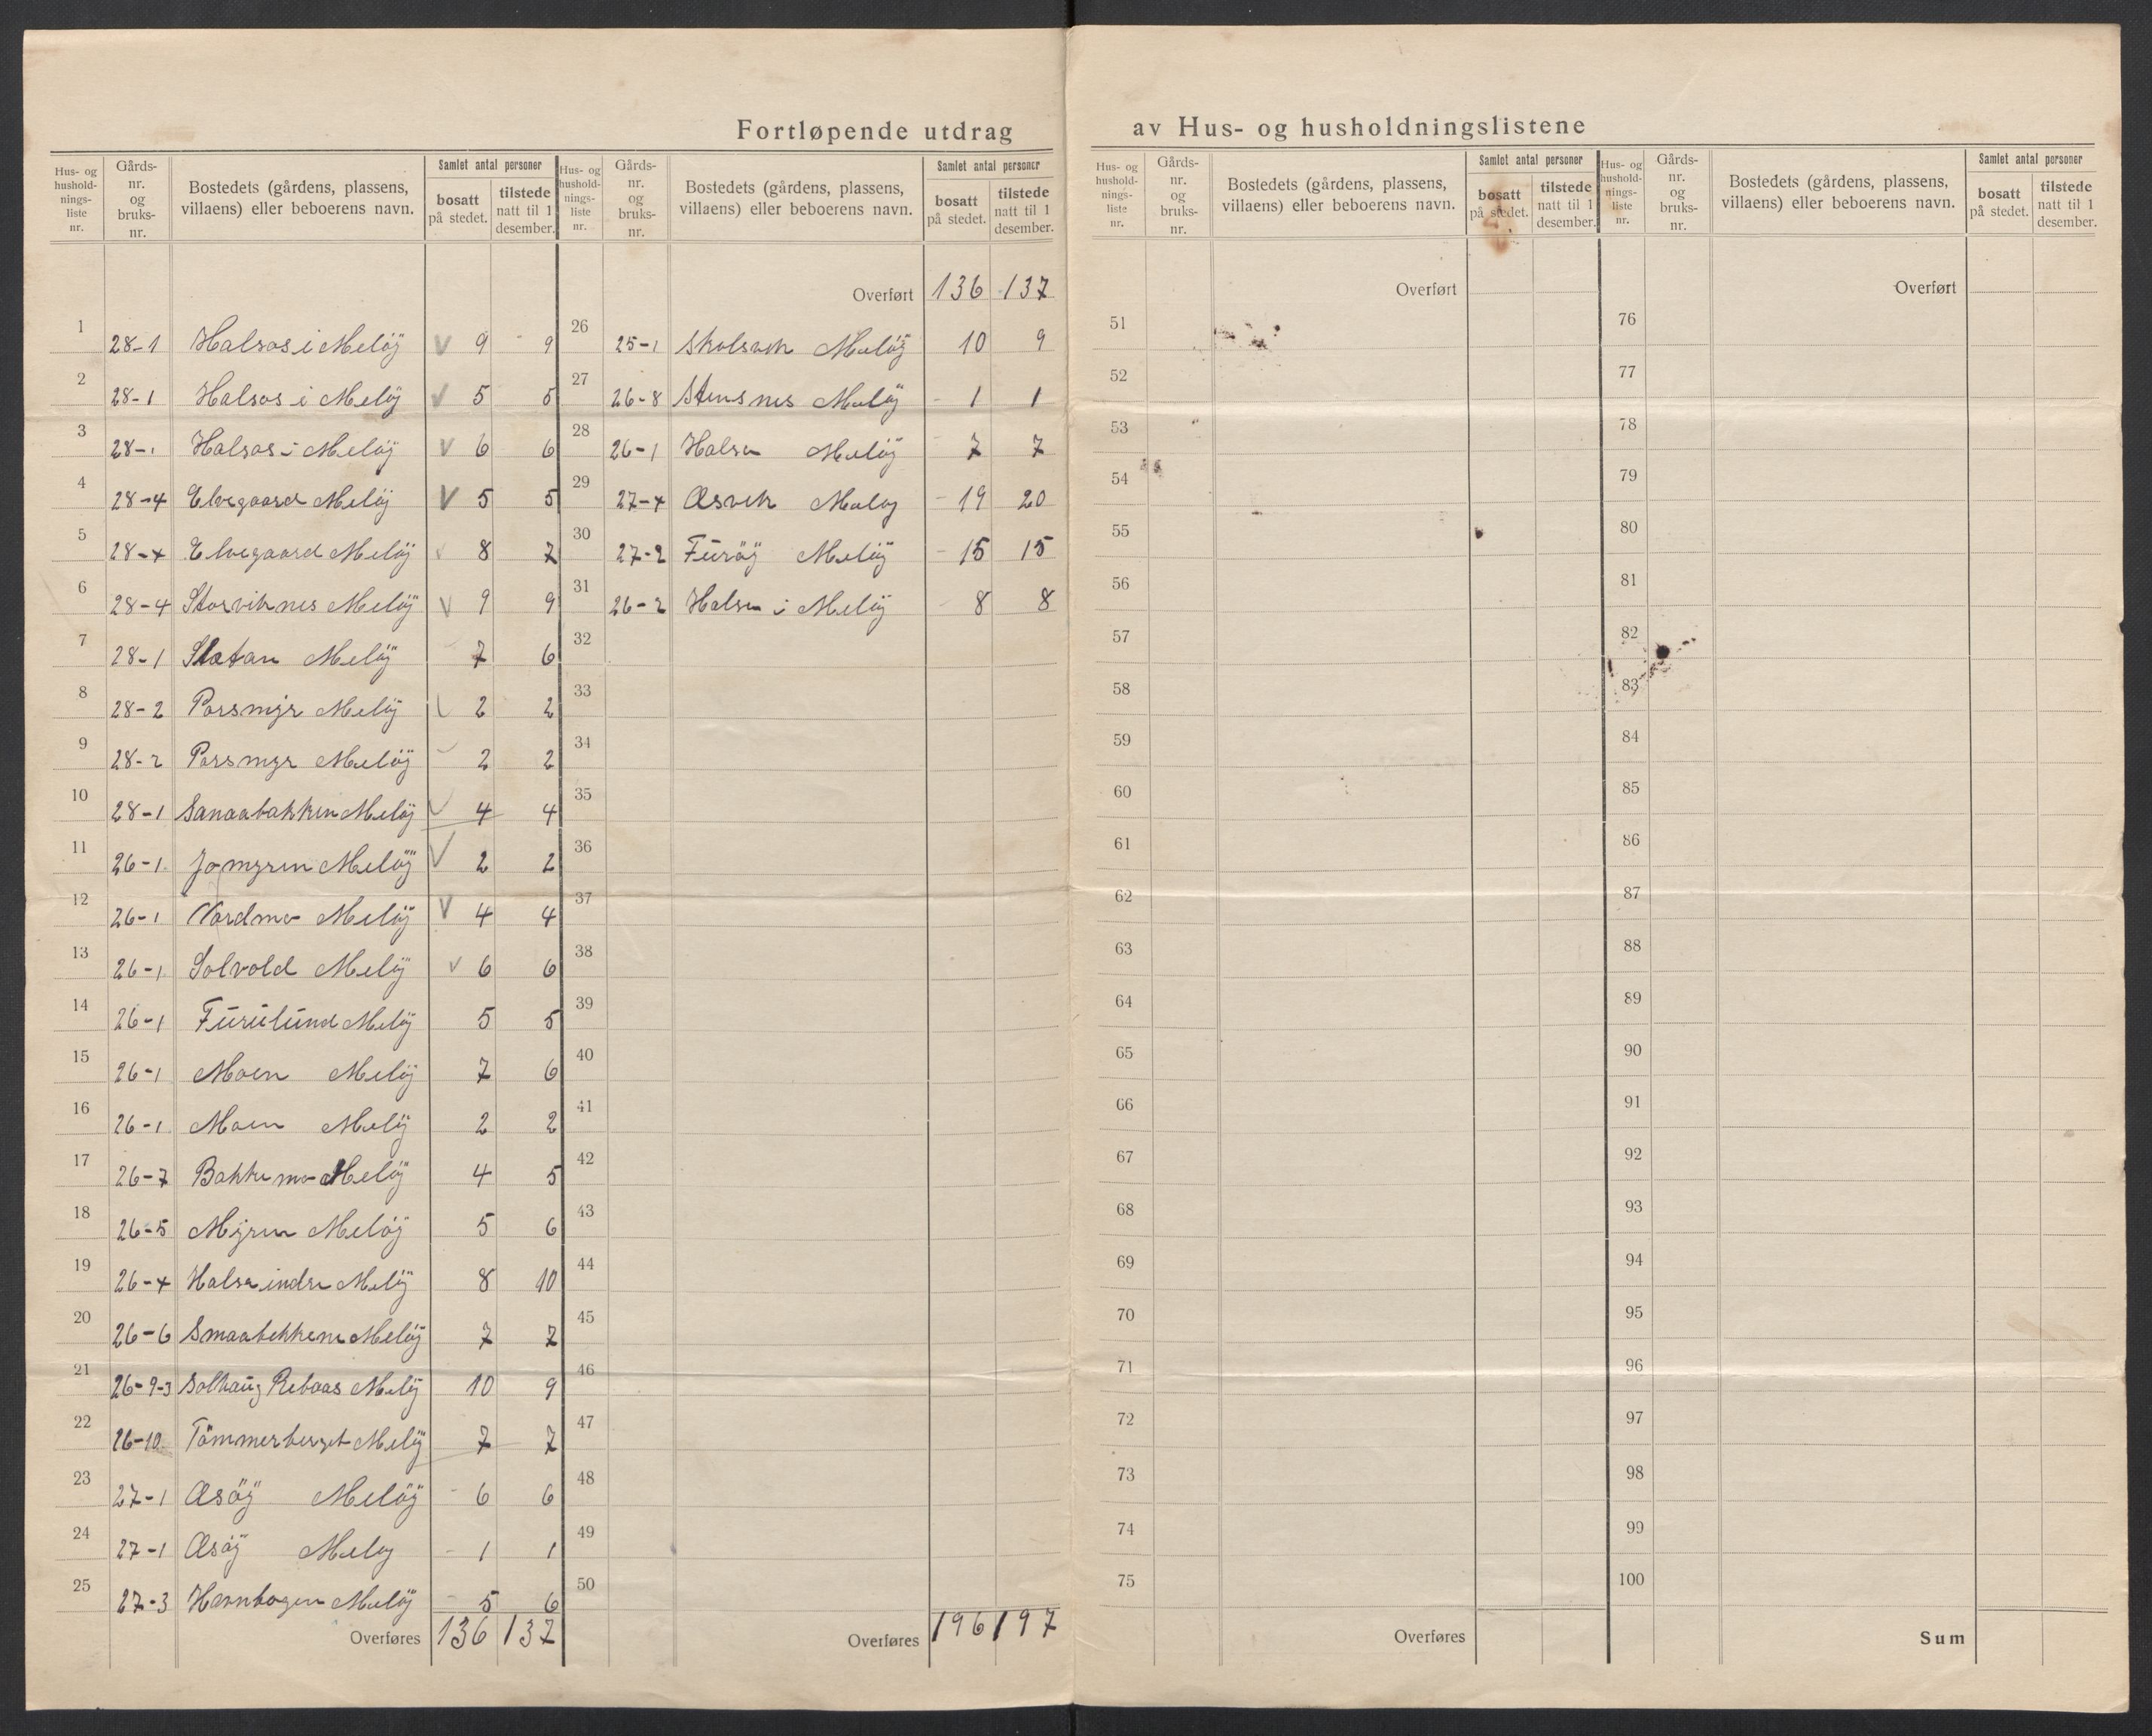 Fortløpende utdrag av Hus- og husholdningslistene
Hus- og hushold-nings-liste nr. Gårds-nr. og bruks-nr. Bostedets (gårdens, plassens, villaens) eller beboerens navn. Samlet antal personer bosatt på stedet. tilstede natt til 1 desember.
1 28-1 Halsos i Meløÿ V 9 9
2 28-1 Halsos i Meløÿ V 5 5
3 28-1 Halsos i Meløÿ V 6 6
4 28-4 Elvegaard Meløÿ V 5 5
5 28-4 Elvegaard Meløÿ V 8 7
6 28-4 Storviknes Meløÿ V 9 9
7 28-1 Sletan Meløÿ 7 6
8 28-2 Porsmyr Meløÿ 2 2
9 28-2 Porsmyr Meløÿ 2 2
10 28-1 Sanaabakken Meløÿ V 4 4
11 26-1 Jomyren Meløÿ V 2 2
12 26-1 Nordmo Meløÿ V 4 4
13 26-1 Solvold Meløÿ V 6 6
14 26-1 Furulund Meløÿ 5 5
15 26-1 Moen Meløÿ 7 6
16 26-1 Moen Meløÿ 2 2
17 26-7 Bakkemo Meløÿ 4 5
18 26-5 Myren Meløÿ 5 6
19 26-4 Halsa indre Meløÿ 8 10
20 26-6 Smaabekkene Meløÿ 7 7
21 26-9-3 Solhaug Rebaas Meløÿ 10 9
22 26-10 Tömmerberget Meløÿ 7 7
23 27-1 Æsöÿ Meløÿ 6 6
24 27-1 Æsöÿ Meløy 1 1
25 27-3 Havnbogen Meløÿ 5 6
Overføres 136 137
Hus- og hushold-nings-liste nr. Gårds-nr. og bruks-nr. Bostedets (gårdens, plassens, villaens) eller beboerens navn. Samlet antal personer bosatt på stedet. tilstede natt til 1 desember.
Overført 136 137
26 25-1 Skolsvik Meløÿ 10 9
27 26-8 Stensnes Meløÿ 1 1
28 26-1 Halsa Meløÿ 7 7
29 27-4 Æsvik Meløy 19 20
30 27-2 Furöÿ Meløÿ 15 15
31 26-2 Halsa i Meløÿ 8 8
32
33
34
35
36
37
38
39
40
41
42
43
44
45
46
47
48
49
50
Overføres 196 197
Hus- og hushold-nings-liste nr. Gårds-nr. og bruks-nr. Bostedets (gårdens, plassens, villaens) eller beboerens navn. Samlet antal personer bosatt på stedet. tilstede natt til 1 desember.
Overført
51
52
53
54
55
56
57
58
59
60
61
62
63
64
65
66
67
68
69
70
71
72
73
74
75
Overføres
Hus- og hushold-nings-liste nr. Gårds-nr. og bruks-nr. Bostedets (gårdens, plassens, villaens) eller beboerens navn. Samlet antal personer bosatt på stedet. tilstede natt til 1 desember.
Overført
76
77
78
79
80
81
82
83
84
85
86
87
88
89
90
91
92
93
94
95
96
97
98
99
100
Sum